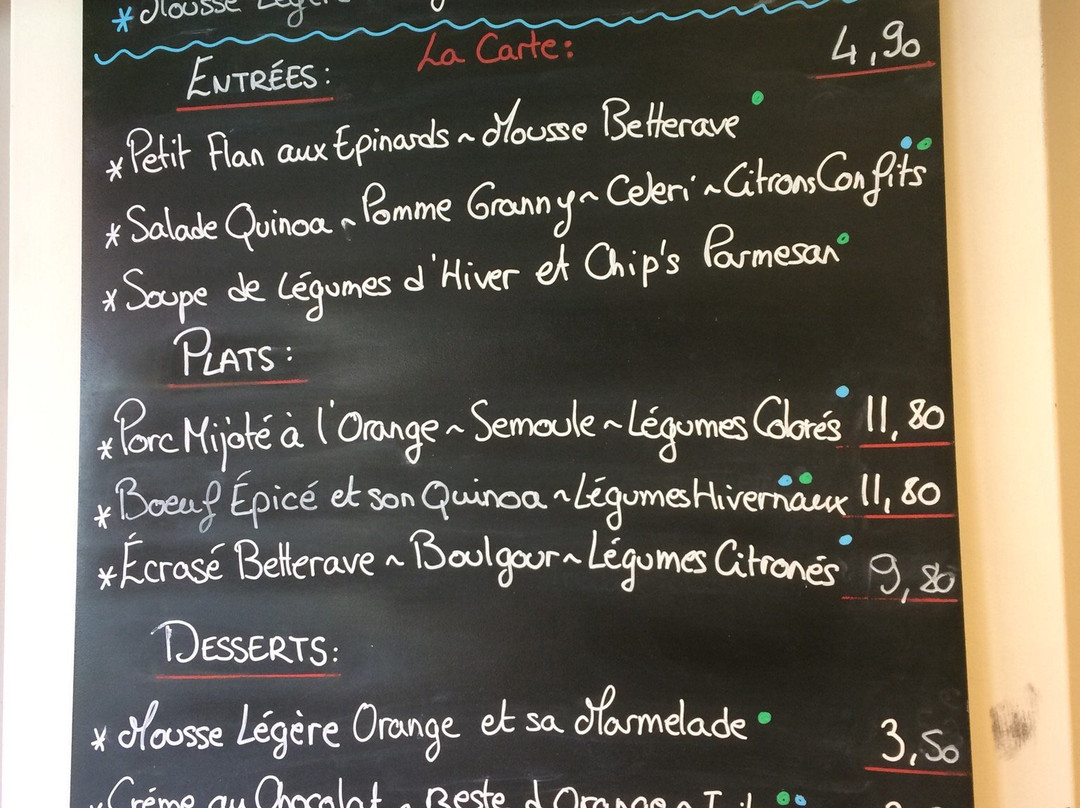 * Mousse Légère
La Carte:
ENTRÉES: 4,90
* Petit Flan aux Epinards ~ Mousse Betterave
* Salade Quinoa ~ Pomme Granny ~ Celeri ~ Citrons Confits
* Soupe de Légumes d'Hiver et Chip's Parmesan
PLATS:
* Porc Mijoté à l'Orange ~ Semoule ~ Légumes Colorés 11,80
* Boeuf Épicé et son Quinoa ~ Légumes Hivernaux 11,80
* Écrasé Betterave ~ Boulgour ~ Légumes Citronés 9,80
DESSERTS:
* Mousse Légère Orange et sa Marmelade 3,50
* Créme au Chocolat ~ Zeste d'Orange ~